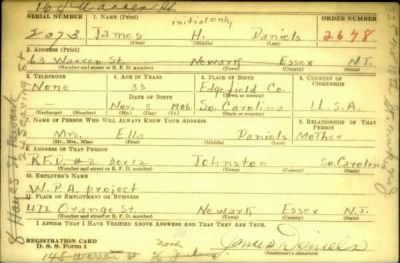 164 Warren St
SERIAL NUMBER 1. NAME (Print) ORDER NUMBER
initial only
2073 James H. Daniels 2678
(First) (Middle) (Last)
2. ADDRESS (Print)
63 Warren St. Newark Essex N.J.
(Number and street or R. F. D. number) (Town) (County) (State)
3. TELEPHONE 4. AGE IN YEARS 5. PLACE OF BIRTH 6. COUNTRY OF CITIZENSHIP
None 33 Edgefield Co.
DATE OF BIRTH
Nov. 8 1906 So. Carolina U.S.A.
(Mo.) (Day) (Yr.)
7. NAME OF PERSON WHO WILL ALWAYS KNOW YOUR ADDRESS 8. RELATIONSHIP OF THAT PERSON
Mrs. Ella Daniels Mother
(Mr., Mrs., Miss) (First) (Middle) (Last)
9. ADDRESS OF THAT PERSON
R.F.D. #2 box 12 Johnston So. Carolina
(Number and street or R. F. D. number) (Town) (County) (State)
10. EMPLOYER'S NAME
W.P.A. project
11. PLACE OF EMPLOYMENT OR BUSINESS
472 Orange St. Newark Essex N.J.
(Number and street or R. F. D. number) (Town) (County) (State)
I AFFIRM THAT I HAVE VERIFIED ABOVE ANSWERS AND THAT THEY ARE TRUE.
REGISTRATION CARD
D. S. S. Form 1
James Daniels
148 Warren St